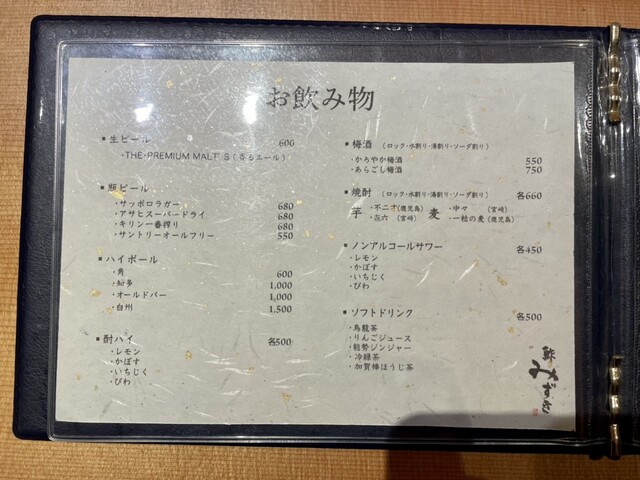 お飲み物
▪生ビール 600
・THE・PREMIUM MALT'S(香るエール)
▪瓶ビール
・サッポロラガー 680
・アサヒスーパードライ 680
・キリン一番搾り 680
・サントリーオールフリー 550
▪ハイボール
・角 600
・知多 1,000
・オールドパー 1,000
・白州 1,500
▪酎ハイ 各500
・レモン
・かぼす
・いちじく
・びわ
▪梅酒 (ロック・水割り・湯割り・ソーダ割り)
・かろやか梅酒 550
・あらごし梅酒 750
▪焼酎 (ロック・水割り・湯割り・ソーダ割り) 各660
芋 ・不二才(鹿児島) 麦 ・中々 (宮崎)
・㐂六 (宮崎) ・一粒の麦(鹿児島)
▪ノンアルコールサワー 各450
・レモン
・かぼす
・いちじく
・びわ
▪ソフトドリンク 各500
・烏龍茶
・りんごジュース
・能勢ジンジャー
・冷緑茶
・加賀棒ほうじ茶
鮓